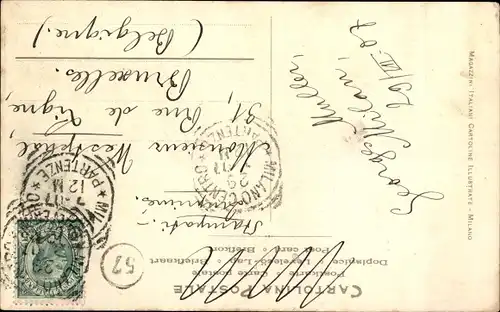 CARTOLINA POSTALE
Postkarte • Carte postale
Dopisnice • Levelező-Lap • Briefkaart
Post card • Brefkort
Stampati.-
Monsieur Westphal,
31, Rue de Ligne,
Bruxelles.
(Belgique.)
Georges Muller,
Milan,
29/XII. 07
MAGAZZINI ITALIANI CARTOLINE ILLUSTRATE - MILANO
MILANO CENTRO
PARTENZE
29
PARTENZE
7-17
12 M
57